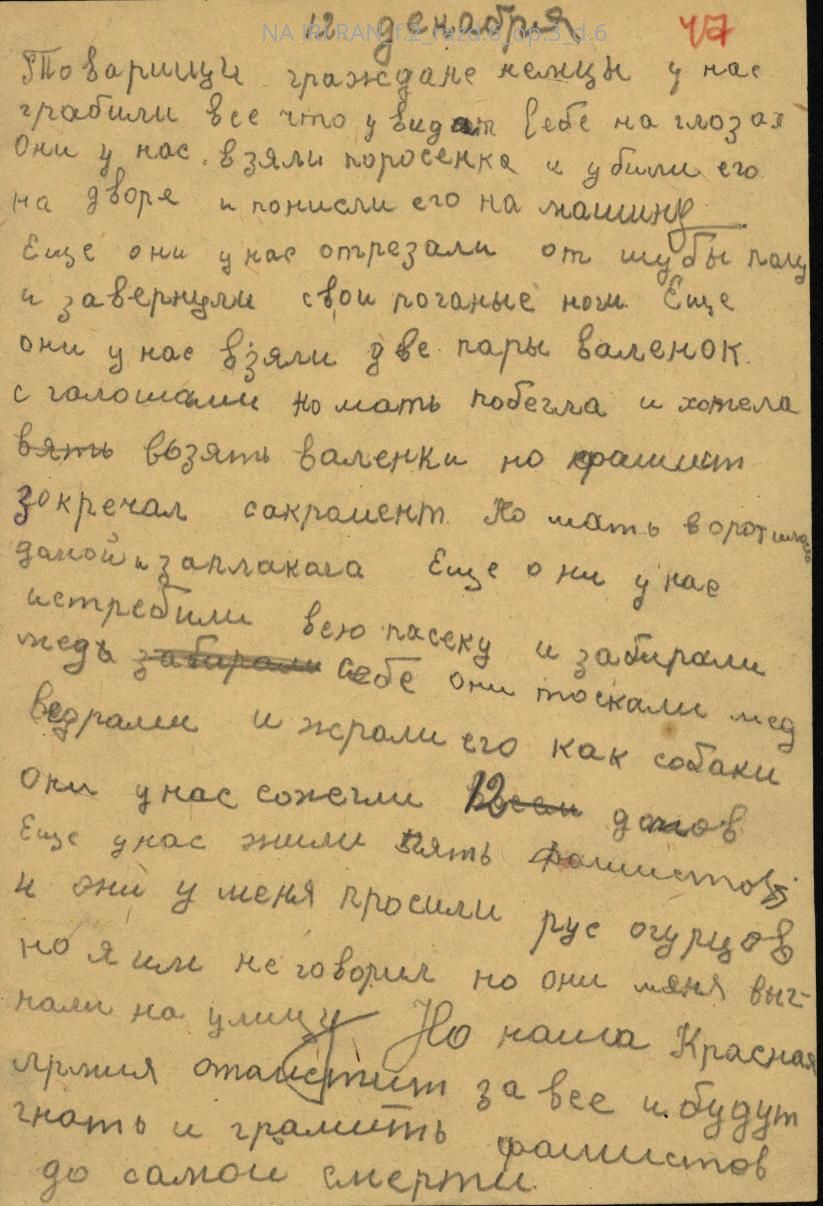 NA IRI RAN_f.2_razd.6_op.3_d.6
12 декабря
47
Товарищи граждане немцы у нас
грабили все что увидат себе на глозах
Они у нас взяли поросенка и убили его
на дворе и понисли его на машину
Еще они у нас отрезали от шубы полу
и завернули свои поганые ноги Еще
они у нас взяли две пары валенок
с голошами но мать побегла и хотела
вять возять валенки но фашист
зокречал сакромент Но мать воротилась
дамой и заплакала Еще они у нас
истребили всю пасеку и забирали
медь забирали себе они тоскали мед
ведрами и жрали его как собаки
Они у нас сожгли 12 домов
Еще у нас жили пять фашистов
и они у меня просили рус огурцов
но я им не говорил но они мяня выг-
нали на улицу Но наша Красная
лрмия отомстит за все и будут
гнать и грамить фашистов
до самой смерти